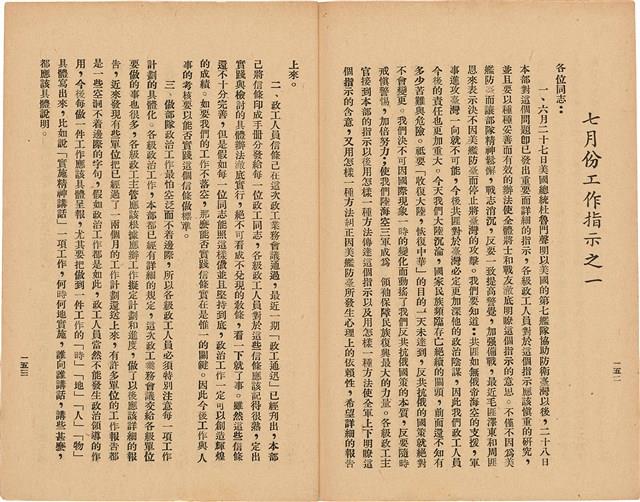 七月份工作指示之一
各位同志：
一、六月二十七日美國總統杜魯門聲明以美國的第七艦隊協助防衛臺灣以後，二十八日
本部對這個問題即已發出重要而詳細的指示，各級政工人員對於這個指示應該慎重的研究，
並且要以種種妥善而有效的辦法使全體將士和戰友澈底明瞭這個指示的意思。不僅不因為美
艦防臺而讓部隊精神鬆懈，戰志消沉，反要一致提高警覺，加強備戰，最近毛匪澤東和周匪
恩來表示決不因美艦防臺而停止將臺灣的攻擊。我們要知道：共匪如無俄帝海空的支援，軍
事進攻臺灣一向就不可能，今後共匪對於臺灣必定更加深他的政治陰謀，因此我們政工人員
今後的責任也更加重大。今天我們大陸沉淪，國家民族頻臨存亡絕續的關頭，前面還不知有
多少苦難與危險。祇要「收復大陸，恢復中華」的目的一天未達到，反共抗俄的國策就絕對
不會變更。我們決不可因國際現象一時的變化而動搖了我們反共抗俄國策的本質，反要隨時
戒慎警惕，加倍努力；使我們陸海空三軍成為　領袖保障民族復興最大的力量。各級政工主
官接到本部的指示以後用怎樣一種方法傳達這個指示以及用怎樣一種方法使全軍上下明瞭這
個指示的含意，又用怎樣一種方法糾正因美艦防臺所發生心理上的依賴性，希望詳細的報告
一五二
上來。
二、政工人員信條已在這次政工業務會議通過，最近一期「政工通迅」已經列出，本部
已將信條印成手冊分發給每一位政工同志，各級政工人員對於這些信條應該記得很熟，定出
實踐與檢討的具體辦法澈底實行，絕不可看成不兌現的教條，看一下就了事。雖然這些信條
還不十分完善，但是假如每一位同志能照這樣做並且堅持到底，政治工作一定可以創造輝煌
的成績。如要我們的工作不落空，那麼能否實踐信條實在是惟一的關鍵。因此今後工作與人
事的考核要以能否實踐信條做標準。
三、做部隊政治工作最怕空泛而不着邊際，所以各級政工人員必須特別注意每一項工作
計劃的具體化。各級政治工作，本部都已經有詳細的規定，這次政工業務會議交給各級單位
要做的事也很多，各級政工主管應該根據應辦工作擬定計劃和進度，做了以後應該詳細的報
告，近來發現有些單位把已經過了一兩個月的工作計劃還送上來，有許多單位的工作報告都
是一些空洞不着邊際的字句，假如政治工作都是如此，政工人員當然不能發生政治領導的作
用，今後每做一件工作應該具體呈報，尤其要把做到一件工作的「時」「地」「人」「物」
具體寫出來，比如說「實施精神講話」一項工作，何時何地實施，誰向誰講話，講些甚麼，
都應該具體說明。
一五三